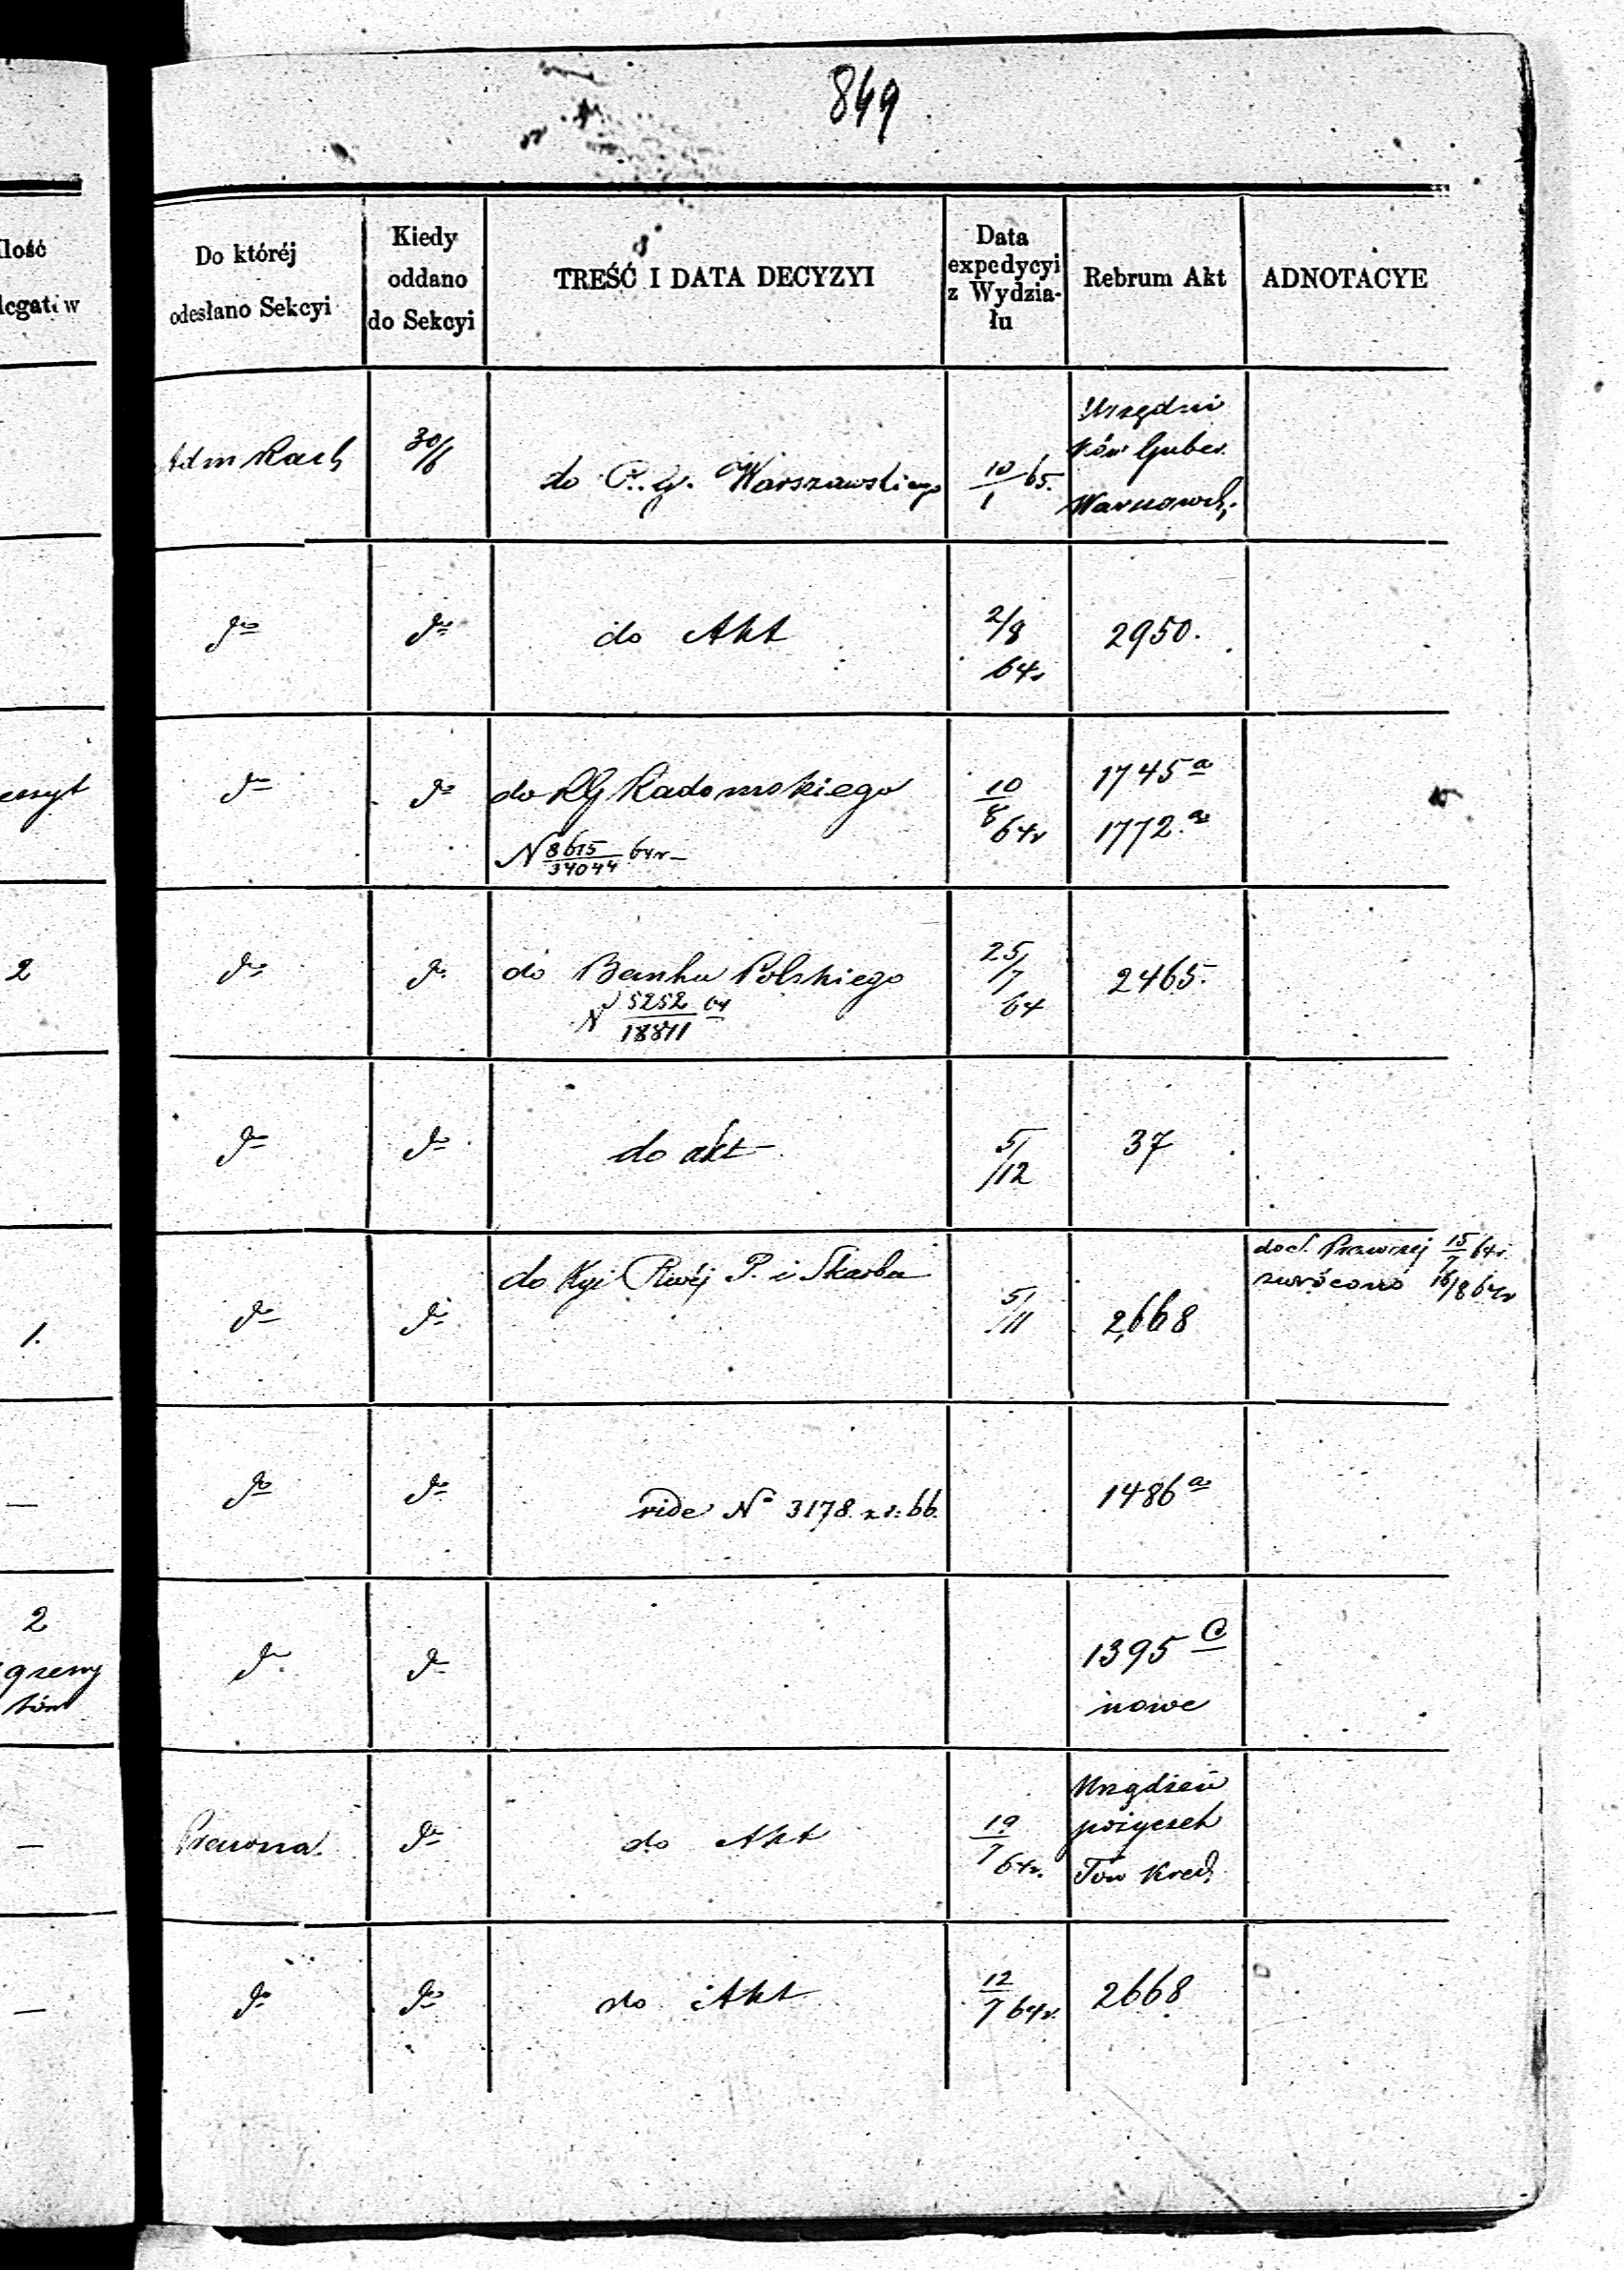 849
Ilość
legatów
Do któréj
odesłano Sekcyi
Kiedy
oddano
do Sekcyi
TREŚĆ I DATA DECYZYI
Data
expedycyi
z Wydzia-
łu
Rebrum Akt
ADNOTACYE
Adm Rach
30/6
do R. G. Warszawskiego
10/1 65.
Urzędni
ków Guber.
Warszawsk.
do
do
do Akt
2/8
64r
2950.
do
do
do RG Radomskiego
N 8615/34044 64r
10/8
64r
1745 a
1772 a
2
do
do
do Banku Polskiego
N 5252/18811 64
25/7
64
2465.
do
do
do akt
5/12
37
1.
do
do
do Kyi Rwéj P. i Skarbu
5/11
2668
do S. Prawnéj 15/7 64r.
zwrócono 16/8 64r
do
do
vide No 3178 z r: 66.
1486 a
2
do
do
1395 C
nowe
Prawna.
do
do Akt
19/7
64r.
Urządzeń
pożyczek
Tow Kred.
do
do
do Akt
12/7 64r.
2668